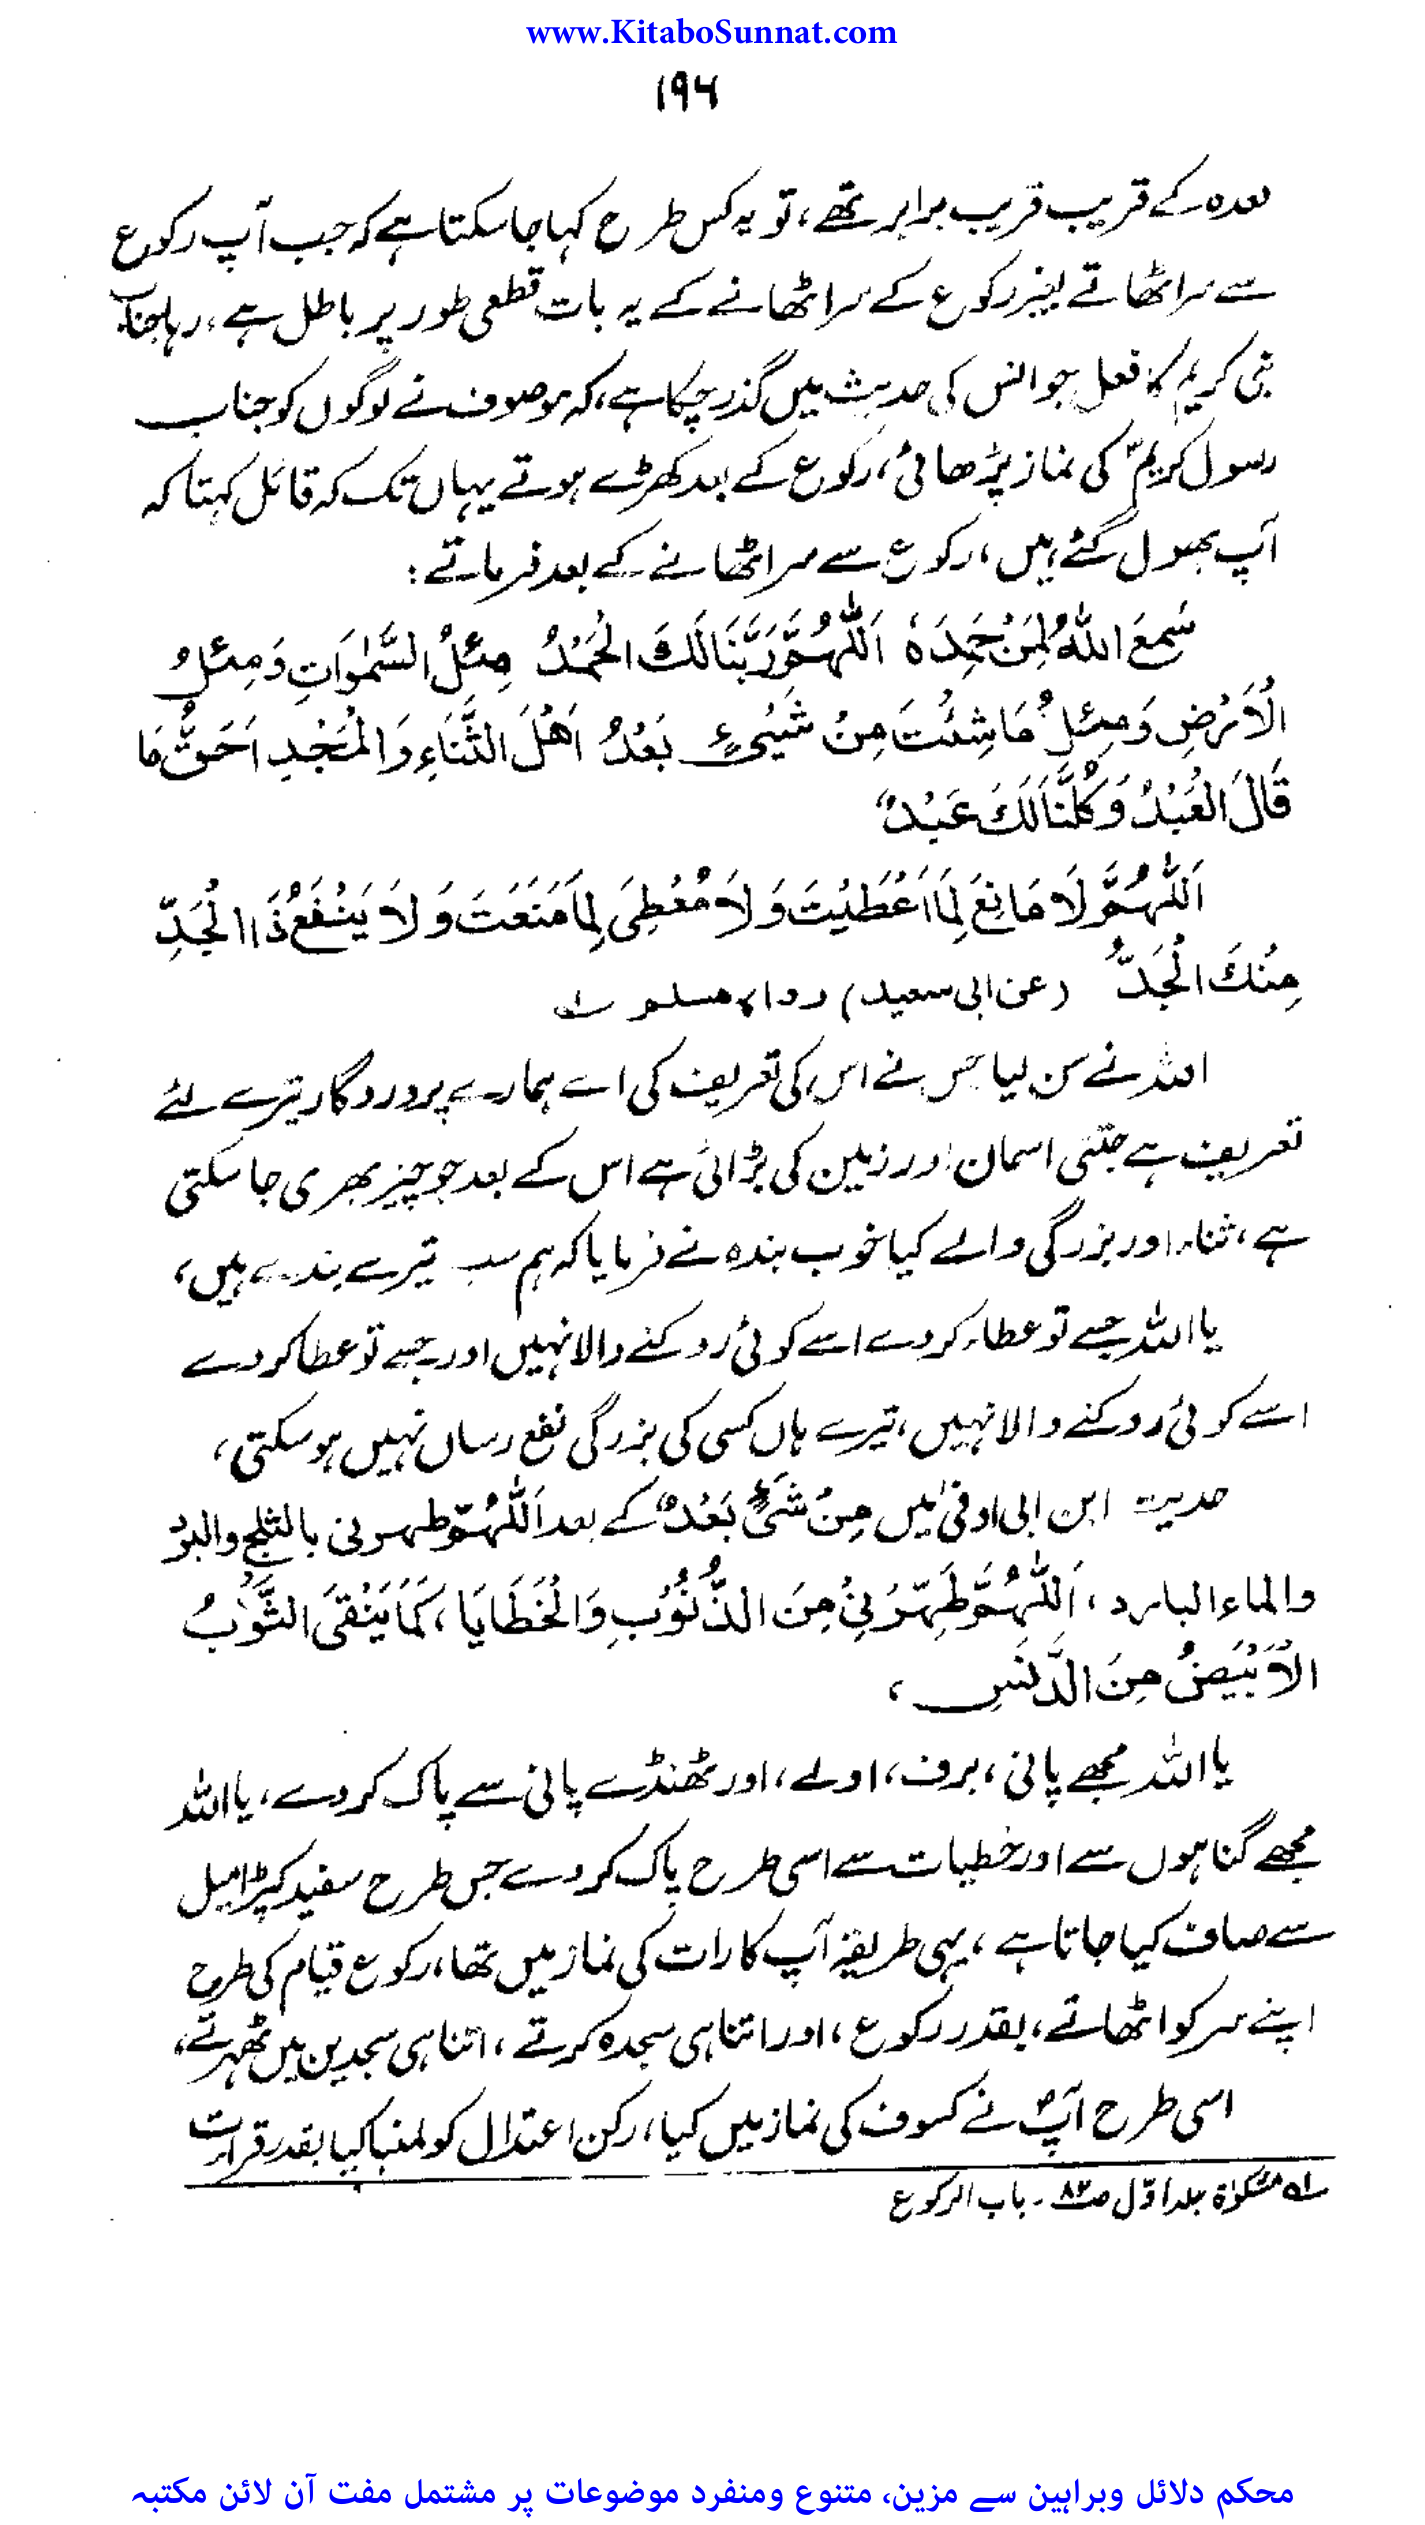 www.KitaboSunnat.com
۱۹۶
قعدہ کے قریب قریب برابر تھے، تو یہ کس طرح کہا جا سکتا ہے کہ جب آپ رکوع
سے سر اٹھاتے بغیر رکوع کے سر اٹھانے کے یہ بات قطعی طور پر باطل ہے، رہا جناب
نبی کریمؐ کا فعل جو انس کی حدیث میں گذر چکا ہے، کہ موصوف نے لوگوں کو جناب
رسول کریمؐ کی نماز پڑھائی، رکوع کے بعد کھڑے ہوتے یہاں تک کہ قائل کہتا کہ
آپ بھول گئے ہیں، رکوع سے سر اٹھانے کے بعد فرماتے:
سَمِعَ اللّٰهُ لِمَنْ حَمِدَهٗ اَللّٰهُمَّ رَبَّنَا لَكَ الْحَمْدُ مِلْئُ السَّمٰوَاتِ وَمِلْئُ
الْاَرْضِ وَمِلْئُ مَا شِئْتَ مِنْ شَيْئٍ بَعْدُ اَهْلَ الثَّنَاءِ وَالْمَجْدِ اَحَقُّ مَا
قَالَ الْعَبْدُ وَكُلُّنَا لَكَ عَبْدٌ
اَللّٰهُمَّ لَا مَانِعَ لِمَا اَعْطَيْتَ وَلَا مُعْطِىَ لِمَا مَنَعَتَ وَلَا يَنْفَعُ ذَا الْجَدِّ
مِنْكَ الْجَدُّ (عن ابی سعید) رواہ مسلم ؎۱
اللہ نے سن لیا جس نے اس کی تعریف کی اے ہمارے پروردگار تیرے لئے
تعریف ہے جتنی اسمان اور زمین کی بڑائی ہے اس کے بعد جو چیز بھری جا سکتی
ہے، ثناء اور بزرگی والے کیا خوب بندہ نے فرمایا کہ ہم سب تیرے بندے ہیں،
یا اللہ جسے تو عطاء کر دے اسے کوئی روکنے والا نہیں اور جسے تو عطا کر دے
اسے کوئی روکنے والا نہیں، تیرے ہاں کسی کی بزرگی نفع رساں نہیں ہو سکتی،
حدیث ابن ابی اوفیٰ میں مِنْ شَیْئٍ بَعْدُ کے بعد اَللّٰهُمَّ طهرنی بالثلج والبرد
والماء البارد، اَللّٰهُمَّ طَهِّرْنِیْ مِنَ الذُّنُوْبِ وَالْخَطَايَا، كَمَا يَنْقَى الثَّوْبُ
الْاَبْيَضُ مِنَ الدَّنَسِ،
یا اللہ مجھے پانی، برف، اولے، اور ٹھنڈے پانی سے پاک کر دے، یا اللہ
مجھے گناہوں سے اور خطیات سے اسی طرح پاک کر دے جس طرح سفید کپڑا میل
سے صاف کیا جاتا ہے، یہی طریقہ آپ کا رات کی نماز میں تھا، رکوع قیام کی طرح
اپنے سر کو اٹھاتے، بقدر رکوع، اور اتنا ہی سجدہ کرتے، اتنا ہی سجدین میں ٹھہرتے،
اسی طرح آپؐ نے کسوف کی نماز میں کیا، رکن اعتدال کو لمبا کیا بقدر قرات
؎۱ مشکوٰۃ جلد اوّل ص۸۲ - باب الرکوع
محکم دلائل وبراہین سے مزین، متنوع ومنفرد موضوعات پر مشتمل مفت آن لائن مکتبہ